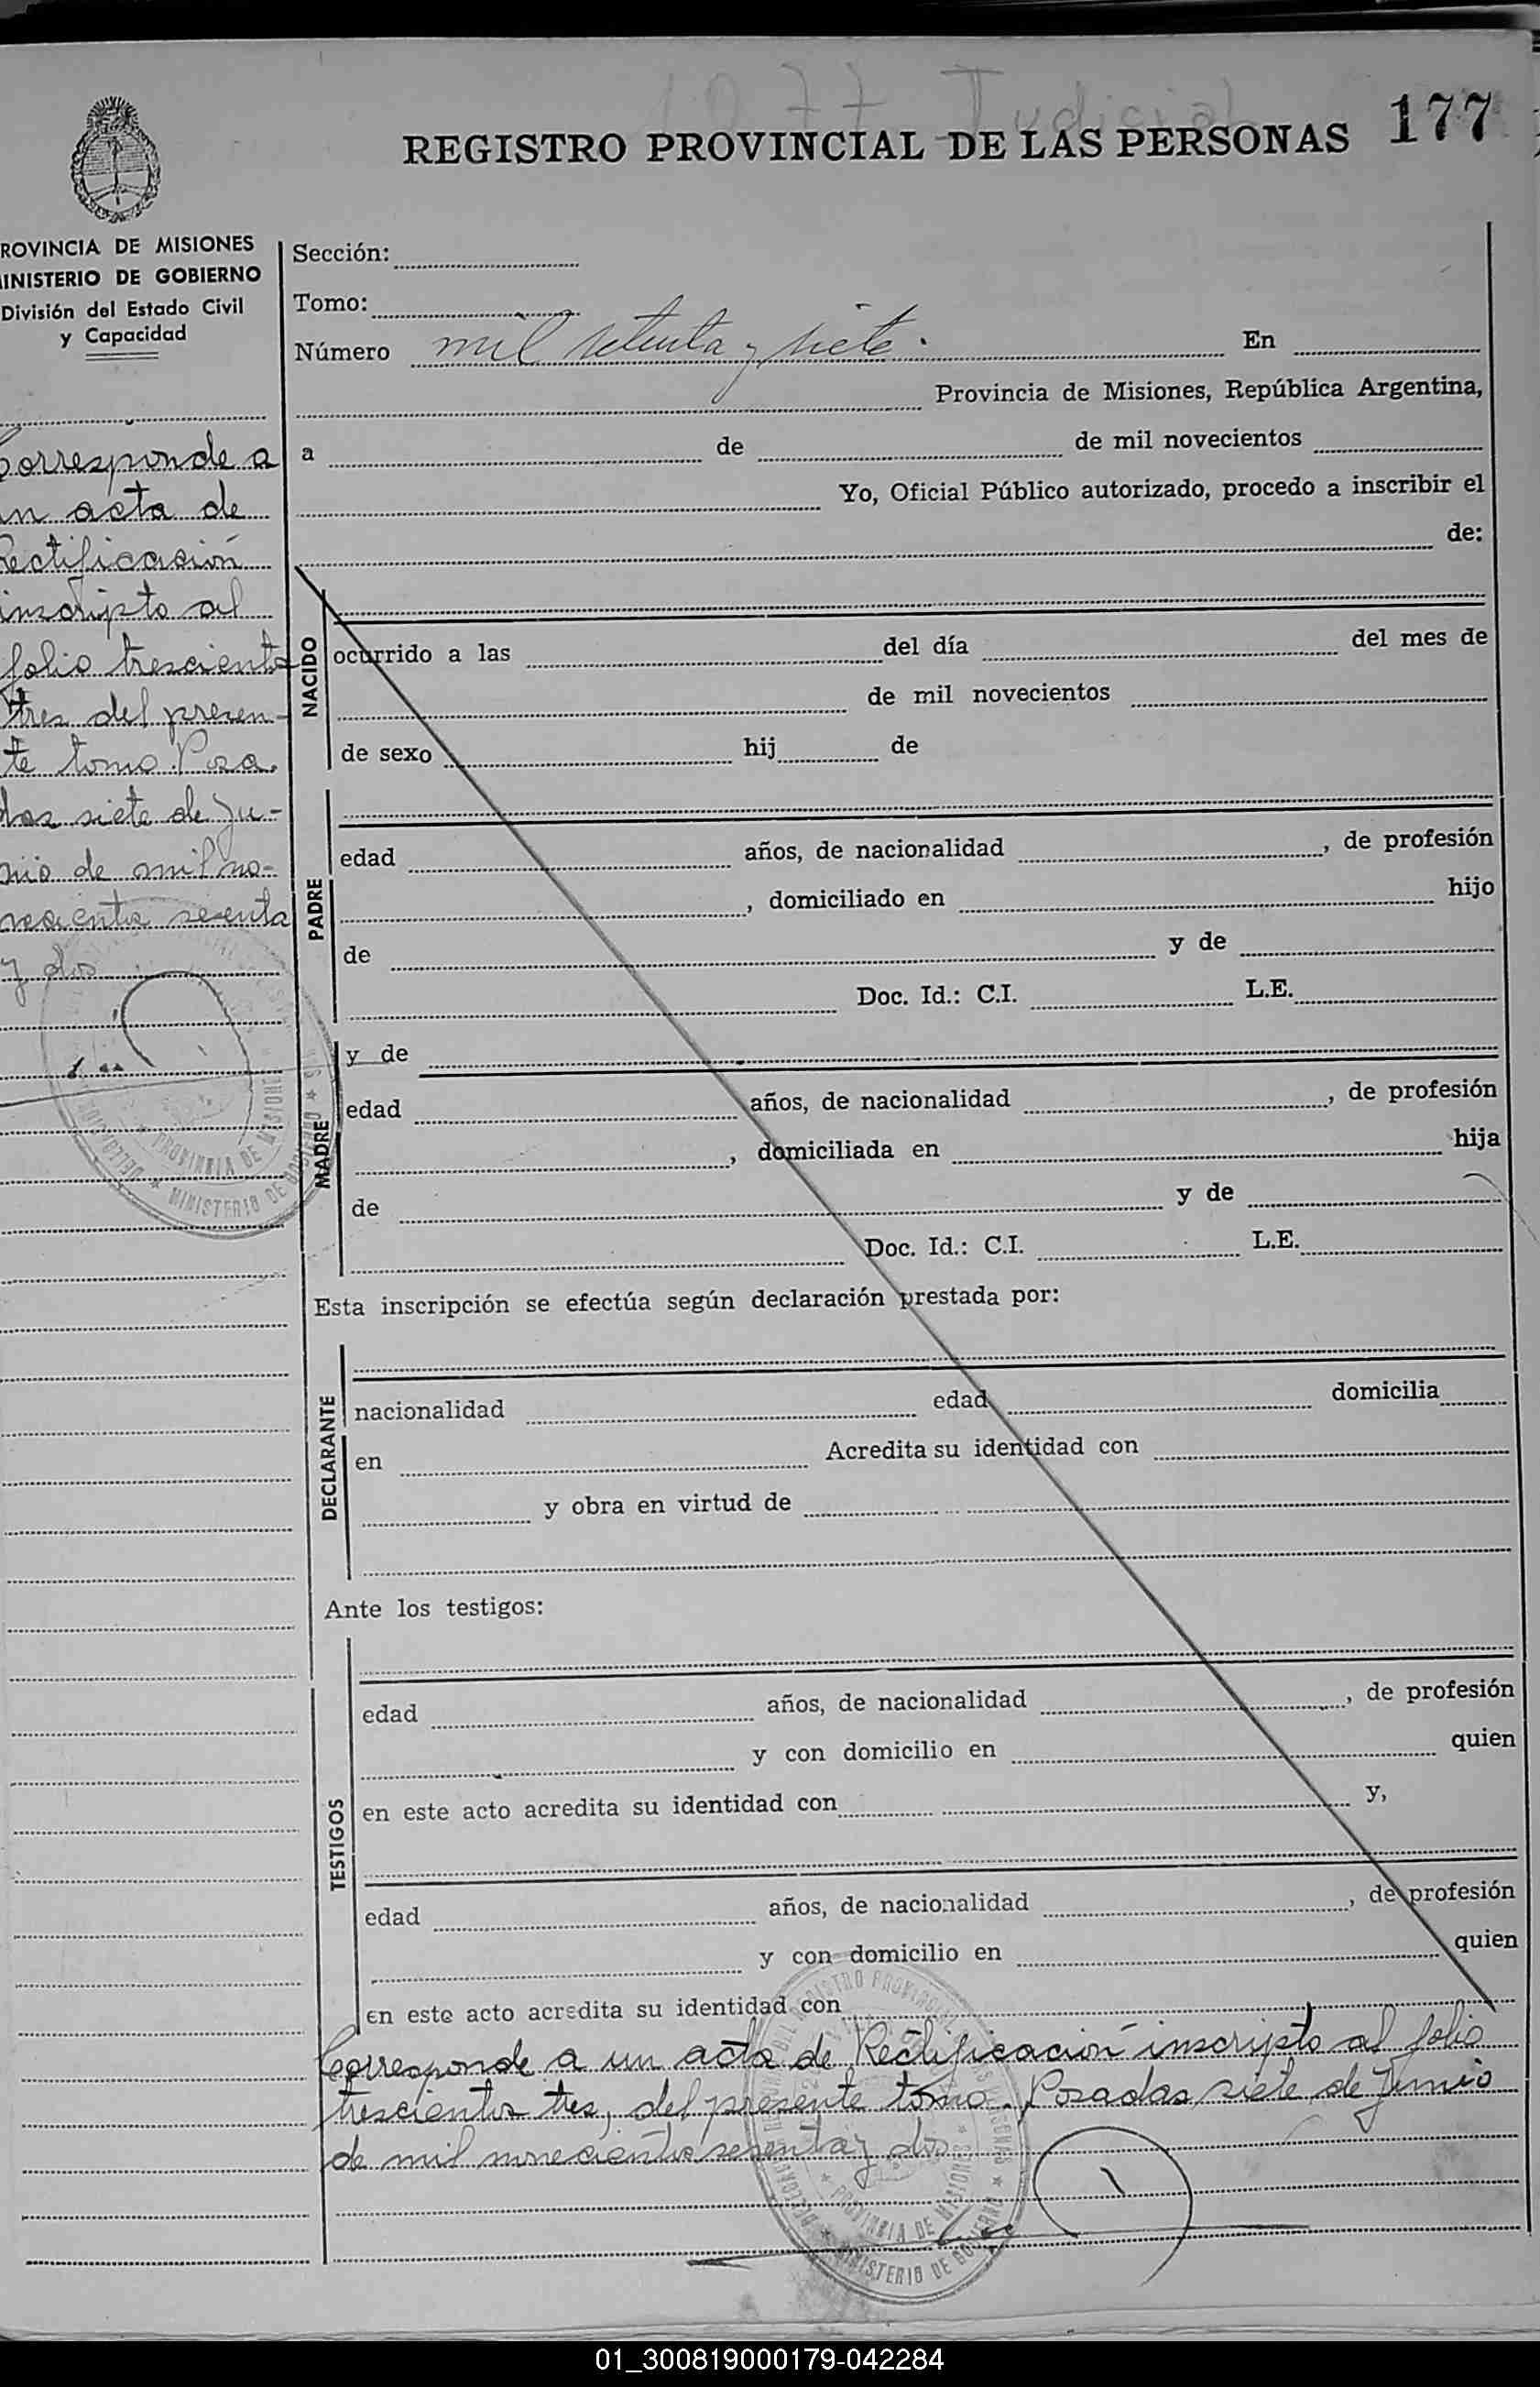 1077 Judicial
REGISTRO PROVINCIAL DE LAS PERSONAS 177
ROVINCIA DE MISIONES
INISTERIO DE GOBIERNO
División del Estado Civil
y Capacidad
Corresponde a
un acta de
Rectificasión
inscripto al
folio trescientos
tres del presen-
te tomo. Posa.
das siete de Ju-
nio de mil no-
vecientos sesenta
y dos
Sección:
Tomo:
Número mil setenta y siete. En
Provincia de Misiones, República Argentina,
a de de mil novecientos
Yo, Oficial Público autorizado, procedo a inscribir el
de:
NACIDO
ocurrido a las del día del mes de
de mil novecientos
de sexo hij de
PADRE
edad años, de nacionalidad , de profesión
, domiciliado en hijo
de y de
Doc. Id.: C.I. L.E.
MADRE
y de
edad años, de nacionalidad , de profesión
, domiciliada en hija
de y de
Doc. Id.: C.I. L.E.
Esta inscripción se efectúa según declaración prestada por:
DECLARANTE
nacionalidad edad domicilia
en Acredita su identidad con
y obra en virtud de
Ante los testigos:
TESTIGOS
edad años, de nacionalidad , de profesión
y con domicilio en quien
en este acto acredita su identidad con y,
edad años, de nacionalidad , de profesión
y con domicilio en quien
en este acto acredita su identidad con
Corresponde a un acta de Rectificación inscripto al folio
trescientos tres, del presente tomo. Posadas, siete de Junio
de mil novecientos sesenta y dos
PROVINCIA DE MISIONES
MINISTERIO DE GOBIERNO
PROVINCIA DE MISIONES
MINISTERIO DE GOBIERNO
01_300819000179-042284